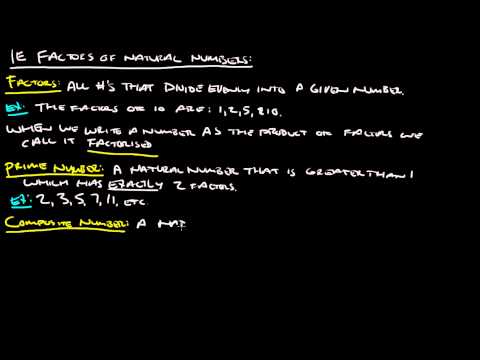 1E FACTORS OF NATURAL NUMBERS:
FACTORS: ALL #'S THAT DIVIDE EVENLY INTO A GIVEN NUMBER.
EX: THE FACTORS OF 10 ARE: 1, 2, 5, & 10.
WHEN WE WRITE A NUMBER AS THE PRODUCT OF FACTORS WE
CALL IT FACTORISED
PRIME NUMBER: A NATURAL NUMBER THAT IS GREATER THAN 1
WHICH HAS EXACTLY 2 FACTORS.
EX: 2, 3, 5, 7, 11, ETC.
COMPOSITE NUMBER: A NAT